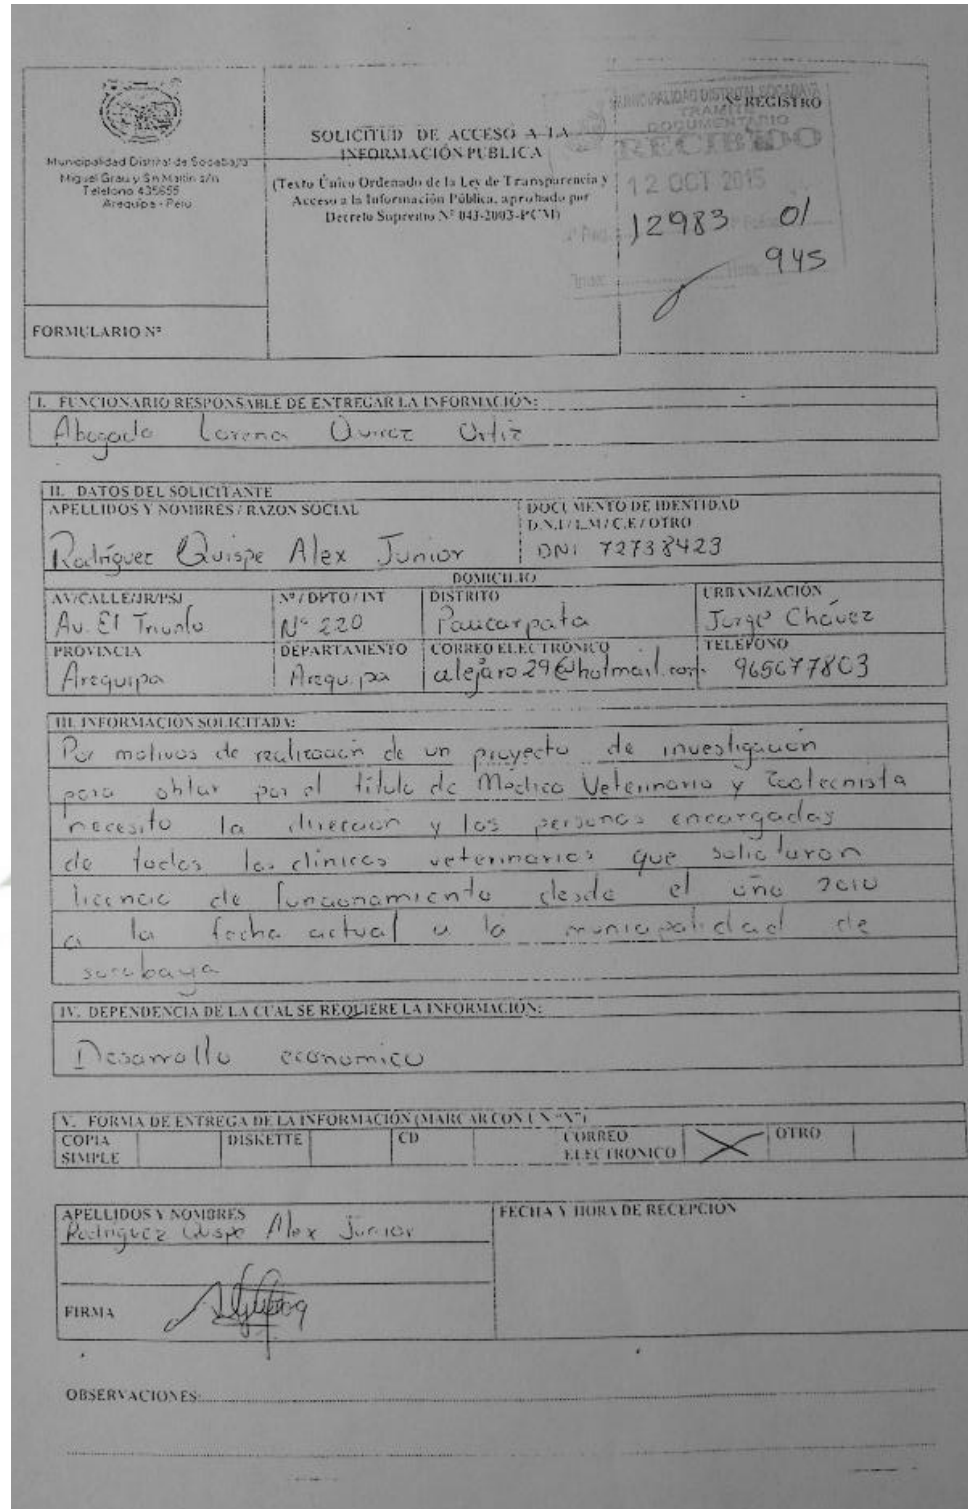 Municipalidad Distrital de Socabaya
Miguel Grau y Sn Martin s/n
Telefono 435655
Arequipa - Peru
FORMULARIO Nº
SOLICITUD DE ACCESO A LA
INFORMACIÓN PUBLICA
(Texto Único Ordenado de la Ley de Transparencia y
Acceso a la Información Pública, aprobado por
Decreto Supremo Nº 043-2003-PCM)
Nº REGISTRO
MUNICIPALIDAD DISTRITAL SOCABAYA
TRAMITE
DOCUMENTARIO
RECIBIDO
12 OCT 2015
12983 01
945
I. FUNCIONARIO RESPONSABLE DE ENTREGAR LA INFORMACIÓN:
Abogada Lorena Ortiz
II. DATOS DEL SOLICITANTE
APELLIDOS Y NOMBRES / RAZON SOCIAL
DOCUMENTO DE IDENTIDAD
D.N.I / L.M / C.E / OTRO
Rodríguez Quispe Alex Junior
DNI 72738423
DOMICILIO
AV/CALLE/JR/PSJ
Nº / DPTO / INT
DISTRITO
URBANIZACIÓN
Av. El Triunfo
Nº 220
Paucarpata
Jorge Chávez
PROVINCIA
DEPARTAMENTO
CORREO ELECTRÓNICO
TELEFONO
Arequipa
Arequipa
alejaro29@hotmail.com
965677803
III. INFORMACION SOLICITADA:
Por motivos de realización de un proyecto de investigación
para obtar por el título de Médico Veterinario y Zootecnista
necesito la dirección y las personas encargadas
de todas las clínicas veterinarias que solicitaron
licencia de funcionamiento desde el año 2010
a la fecha actual a la municipalidad de
socabaya
IV. DEPENDENCIA DE LA CUAL SE REQUIERE LA INFORMACIÓN:
Desarrollo economico
V. FORMA DE ENTREGA DE LA INFORMACIÓN (MARCAR CON UN "X")
COPIA
SIMPLE
DISKETTE
CD
CORREO
ELECTRONICO
X
OTRO
APELLIDOS Y NOMBRES
Rodriguez Quispe Alex Junior
FECHA Y HORA DE RECEPCIÓN
FIRMA
OBSERVACIONES: